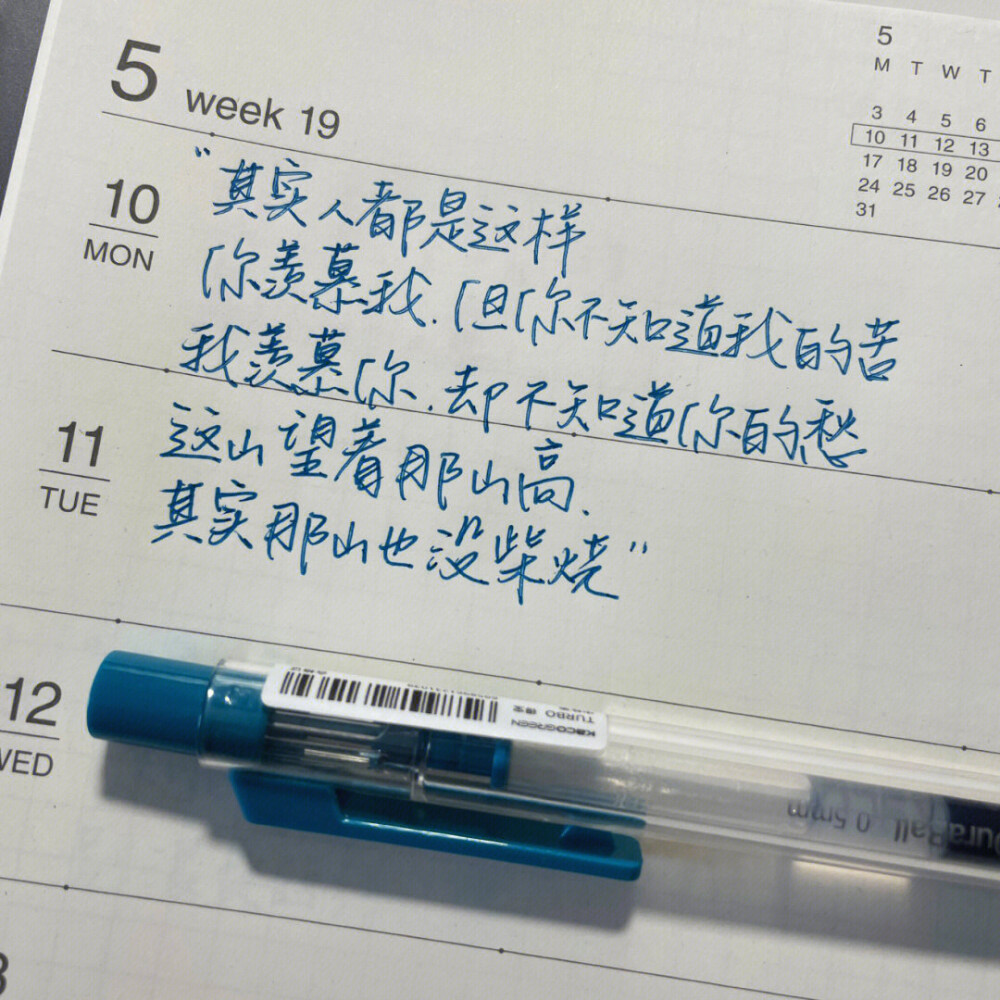 5 week 19
5
M T W T
3 4 5 6
10 11 12 13
17 18 19 20
24 25 26 27
31
10
MON
"其实人都是这样
你羡慕我.但你不知道我的苦
我羡慕你.却不知道你的愁
11
TUE
这山望着那山高.
其实那山也没柴烧"
12
WED
KACOGREEN
TURBO
0.5mm